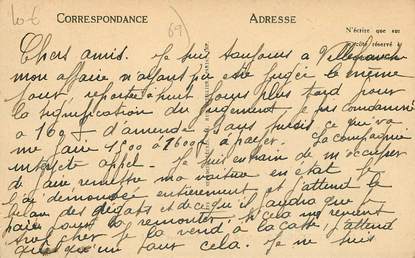 10-6
69)
CORRESPONDANCE
ADRESSE
N'écrire que sur
côté réservé
Chers amis. Je suis toujours à Villefranche
mon affaire n'ayant pas été jugée le même
jour, reportée à huit jours plus tard pour
la signification du jugement. Je pas condamné
à 16 d'amende ce qui va
me faire 1500 à 1600 à payer. La compagnie
interjeté appel. Je suis en train de m'occuper
de faire remettre ma voiture en état je
l'ai démontée entièrement et j'attend le
bilan des dégats et de ce qu'il faudra que je
paie pour la remonter, si cela me revient
trop cher je la vend à la casse, j'attend
quelqu'un pour cela. Je ne suis